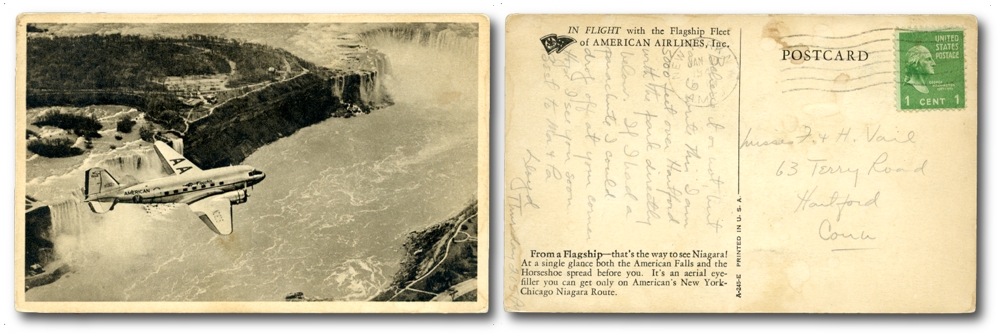 AA
AMERICAN
IN FLIGHT with the Flagship Fleet
of AMERICAN AIRLINES, Inc.
Believe it or not, but
as I write this I am
5000 feet over Hartford
with the park directly
below. If I had a
parachute I could
drop off at your corner
Hope I see you soon
Best to Ma & Pa
Lloyd
Thursday
From a Flagship—that's the way to see Niagara!
At a single glance both the American Falls and the
Horseshoe spread before you. It's an aerial eye-
filler you can get only on American's New York-
Chicago Niagara Route.
A-245-E PRINTED IN U. S. A.
POSTCARD
UNITED
STATES
POSTAGE
1 CENT 1
Misses F. & H. Vail
63 Terry Road
Hartford
Conn